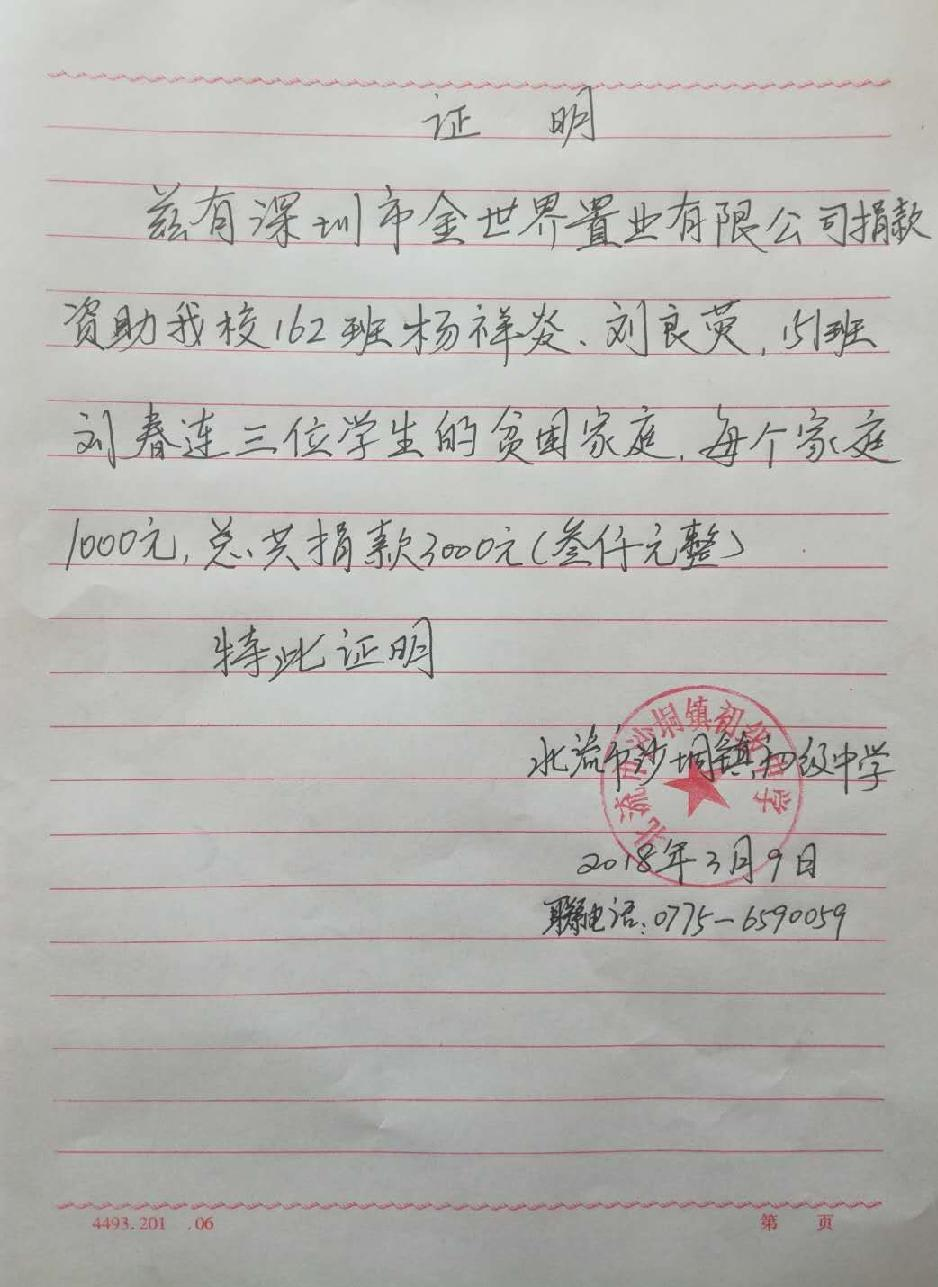 证 明
兹有深圳市金世界置业有限公司捐款
资助我校162班杨祥炎、刘良英，151班
刘春连三位学生的贫困家庭，每个家庭
1000元，总共捐款3000元（叁仟元整）
特此证明
北流市沙垌镇初级中学
北流市沙垌镇初级中学
2018年3月9日
联系电话：0775-6590059
4493.201 .06 第 页